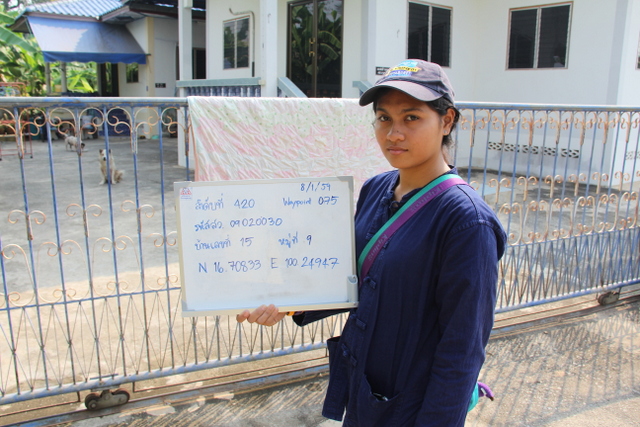 8/1/59
ลำดับที่ 420 Waypoint 075
รหัสตัว 09020030
บ้านเลขที่ 15 หมู่ที่ 9
N 16.70833 E 100.24947